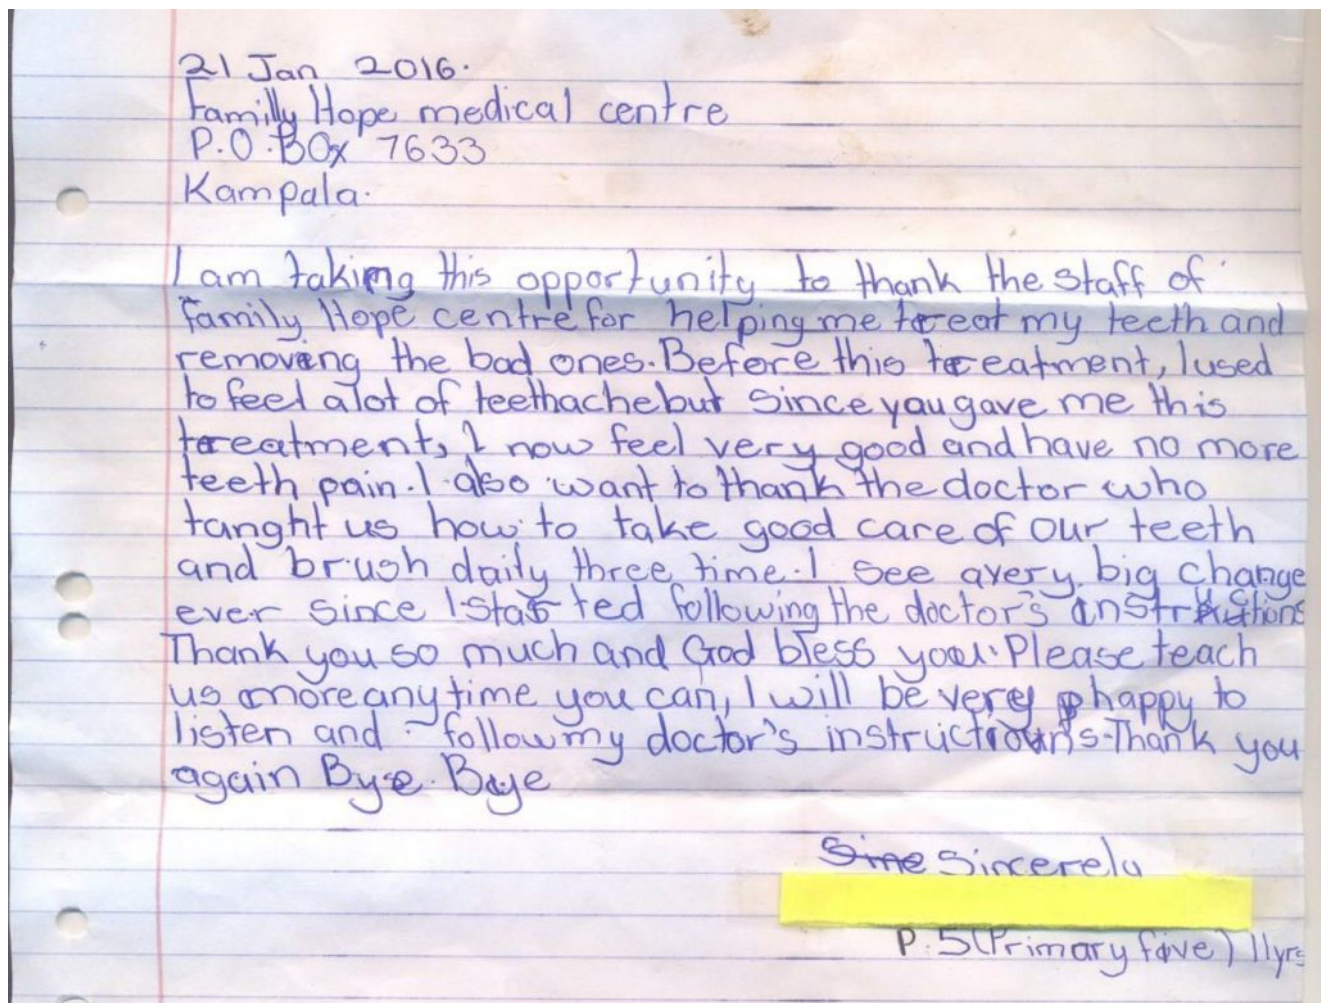 21 Jan 2016.
Familly Hope medical centre
P.O.BOx 7633
Kampala.
I am taking this opportunity to thank the staff of
family Hope centre for helping me treat my teeth and
removing the bad ones. Before this treatment, I used
to feel alot of teethache but since you gave me this
treatment, I now feel very good and have no more
teeth pain. I also want to thank the doctor who
tanght us how to take good care of our teeth
and brush daily three time. I see avery big change
ever since I started following the doctor's instructions
Thank you so much and God bless you. Please teach
us more any time you can, I will be very happy to
listen and follow my doctor's instructions. Thank you
again Bye. Bye
Sime Sincerely
P.5 (Primary five) 11yrs